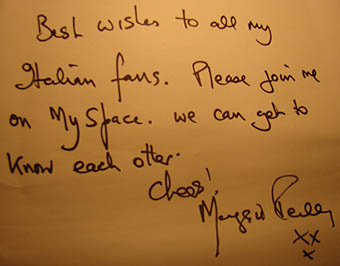 Best wishes to all my
Italian fans. Please join me
on MySpace. we can get to
know each other.
Cheers!
Maggie Reilly
xx
x